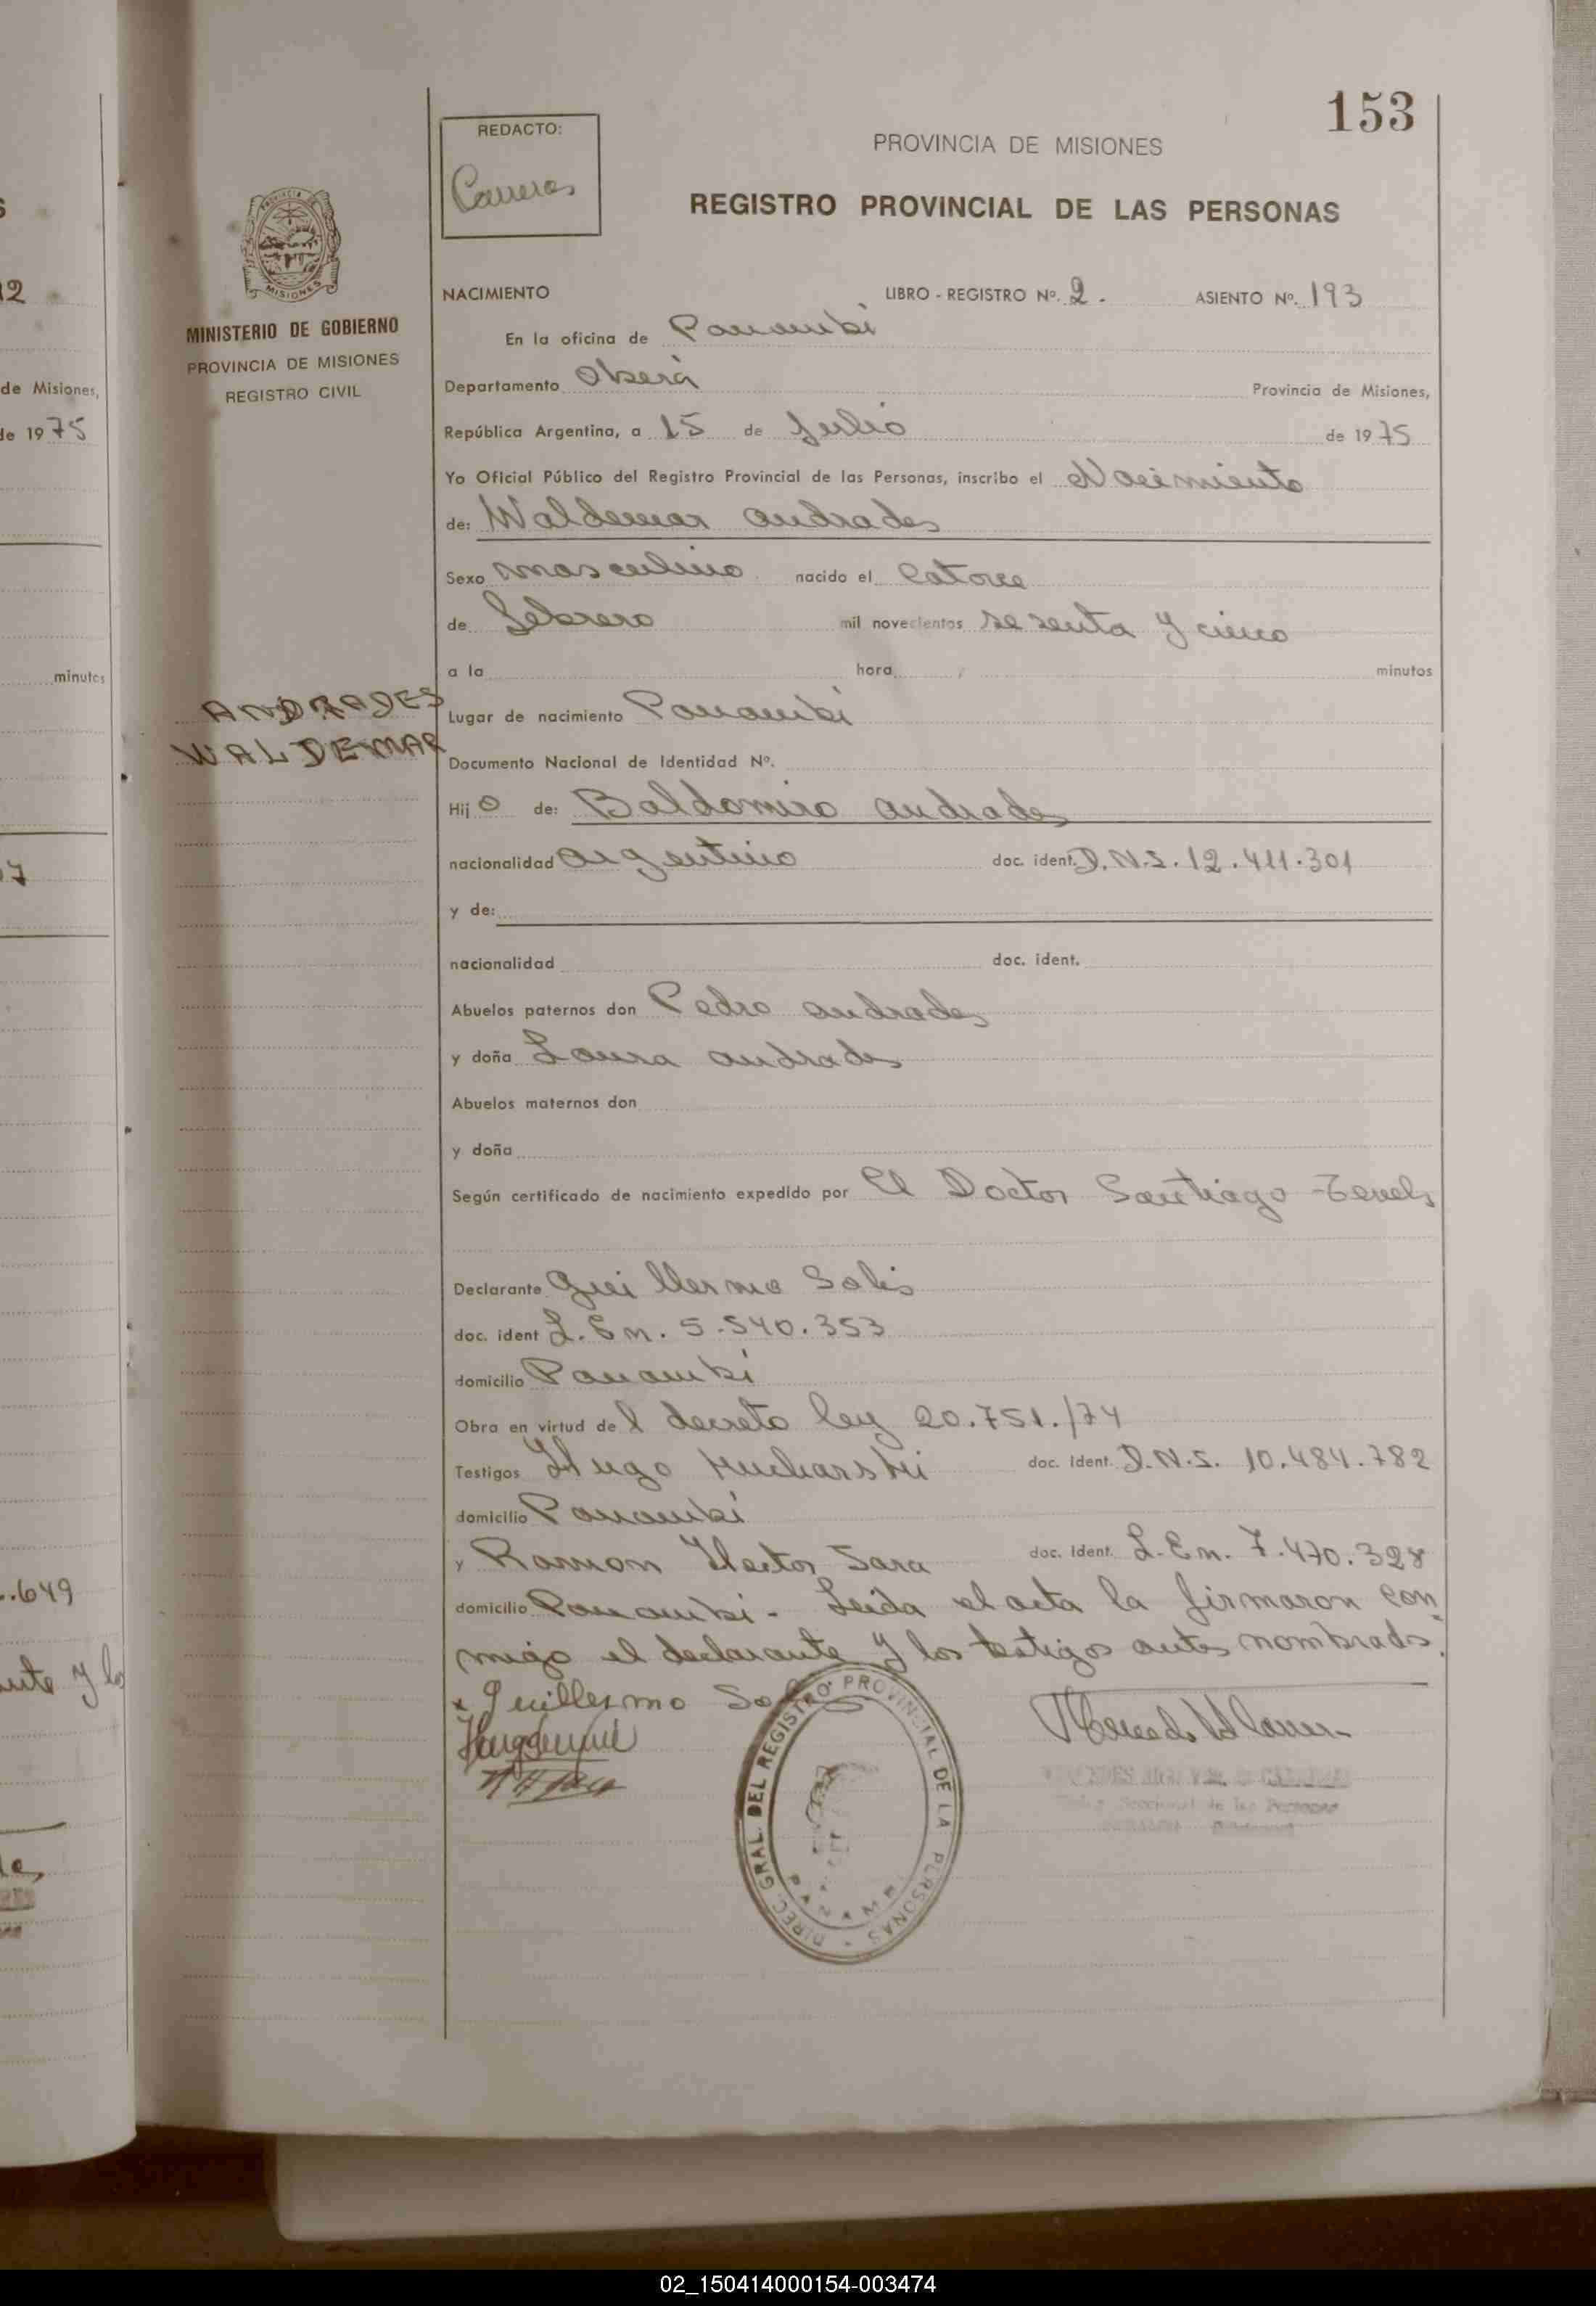 153
REDACTO:
Carreras
PROVINCIA DE MISIONES
REGISTRO PROVINCIAL DE LAS PERSONAS
MISIONES
MINISTERIO DE GOBIERNO
PROVINCIA DE MISIONES
REGISTRO CIVIL
NACIMIENTO LIBRO - REGISTRO Nº. 2. ASIENTO Nº. 193
En la oficina de Panambí
Departamento Oberá Provincia de Misiones,
República Argentina, a 15 de Julio de 1975
Yo Oficial Público del Registro Provincial de las Personas, inscribo el Nacimiento
de: Waldemar andrades
Sexo masculino nacido el Catorce
de Febrero mil novecientos sesenta y cinco
a la hora minutos
ANDRADES
WALDEMAR
Lugar de nacimiento Panambí
Documento Nacional de Identidad Nº.
Hijo de: Baldomiro andrades
nacionalidad argentino doc. ident. D.N.I. 12.411.301
y de:
nacionalidad doc. ident.
Abuelos paternos don Pedro andrades
y doña Laura andrades
Abuelos maternos don
y doña
Según certificado de nacimiento expedido por El Doctor Santiago
Declarante Guillermo Solis
doc. ident L. En. 5.540.353
domicilio Panambí
Obra en virtud del decreto ley 20.751./74
Testigos Hugo Kucharski doc. ident. D.N.I. 10.484.782
domicilio Panambí
y Ramon Hector Sara doc. ident. L. En. 7.470.328
domicilio Panambí - Leida el acta la firmaron con
migo el declarante y los testigos antes nombrados.
Guillermo
DIREC. GRAL. DEL REGISTRO PROVINCIAL DE LA PERSONAS
de Misiones,
de 1975
minutos
.649
02_150414000154-003474